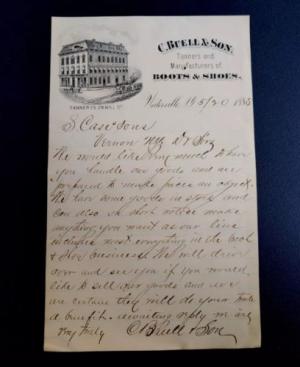 C. BUELL & SON,
Tanners and
Manufacturers of
BOOTS & SHOES,
5/20 1885
S. Case & Sons
Vernon NY Dr Sirs
We would like very much to have
you handle our goods and are
prepared to make prices an object.
We have some goods in stock and
can also at short notice make
anything you want as our line
includes most everything in the Boot
& Shoe business. We will drive
over and see you if you would
like to sell our goods and we
are certain they will do your trade
a benefit. awaiting reply
Very truly C Buell & Son